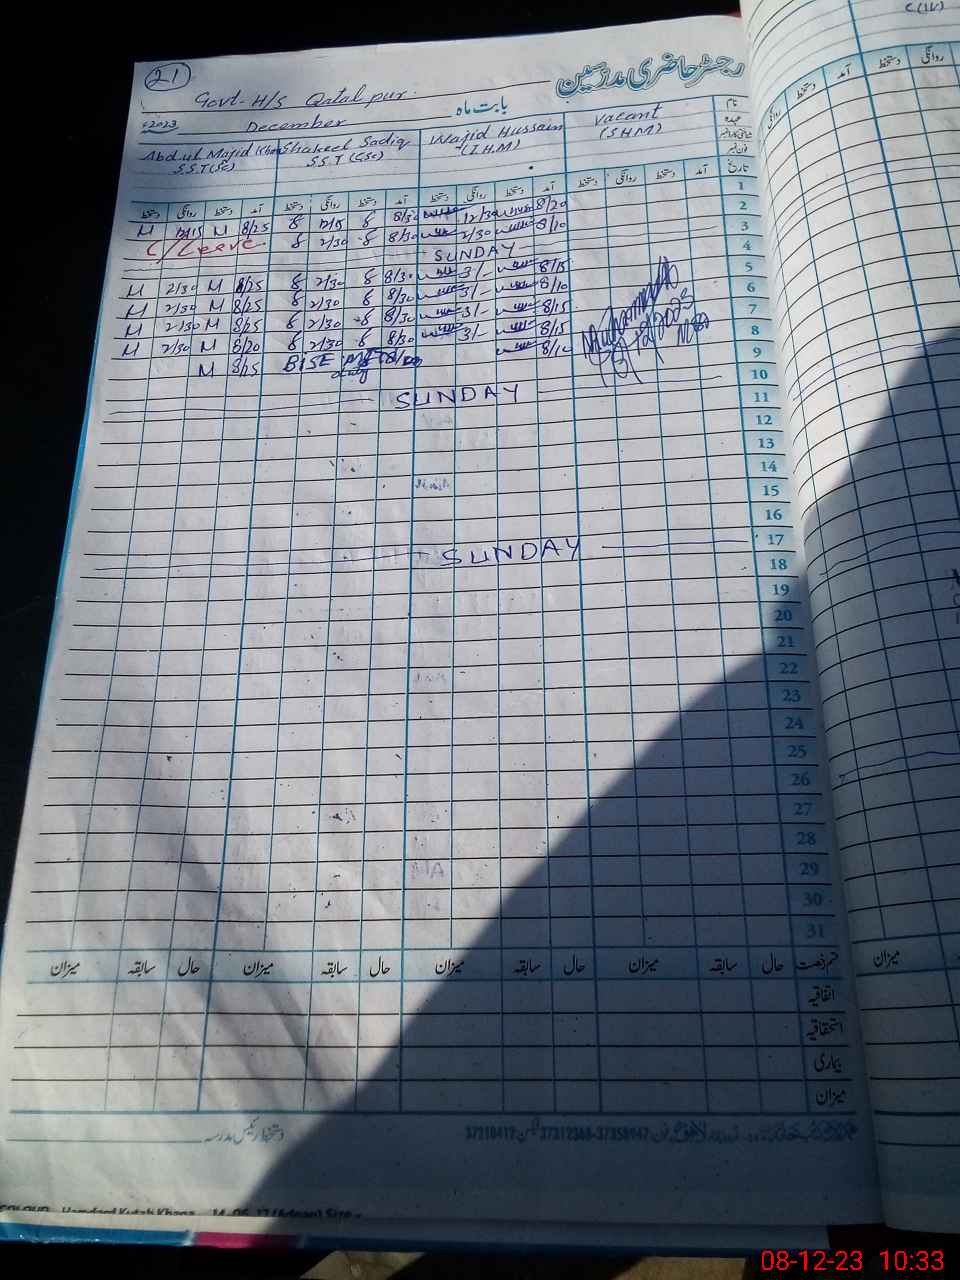 21
رجسٹر حاضری مدرسین
Govt- H/S Qatal pur.
بابت ماہ
December
2023
نام
Abdul Majid Khan Shakeel Sadiq Wajid Hussain Vacant
عہدہ
S.S.T(Sc) S.S.T(CSc) (I.H.M) (SHM)
فون نمبر
تاریخ
دستخط روانگی دستخط آمد دستخط روانگی دستخط آمد دستخط روانگی دستخط آمد دستخط روانگی دستخط آمد
1
M 12/15 M 8/25 12/15 8/30 12/30 8/20 2
C/Leave 2/30 8/30 2/30 8/10 3
SUNDAY 4
M 2/30 M 8/25 2/30 8/30 3/- 8/15 5
M 2/30 M 8/25 2/30 8/30 3/- 8/10 6
M 2/30 M 8/25 2/30 8/30 3/- 8/15 7
M 2/30 M 8/20 2/30 8/30 3/- 8/15 8
M 8/25 BISE duty 8/10 9
10
SUNDAY 11
12
13
14
15
16
SUNDAY 17
18
19
20
21
22
23
24
25
26
27
28
29
30
31
میزان سابقہ حال میزان سابقہ حال میزان سابقہ حال میزان سابقہ حال قسم رخصت
اتفاقیہ
استحقاقیہ
بیماری
میزان
دستخط رئیس مدرسہ
آمد دستخط روانگی
میزان
08-12-23 10:33